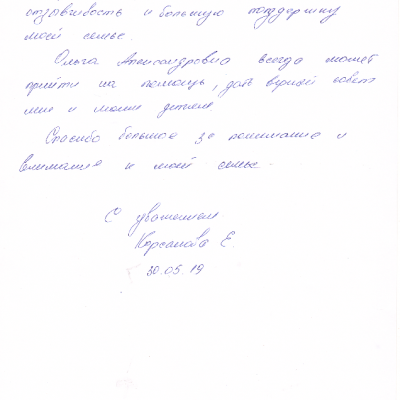 отзывчивость и большую поддержку
моей семье.
Ольга Александровна всегда может
прийти на помощь, дать верный совет
мне и моим детям.
Спасибо большое за понимание и
внимание к моей семье.
С уважением
Е.
30.05.19